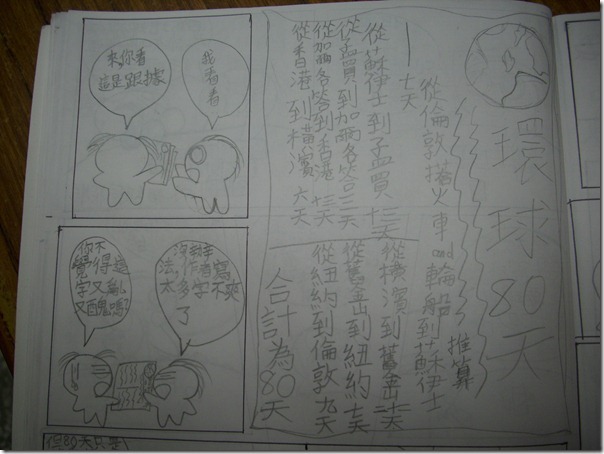 環球80天
推算
從倫敦搭火車and輪船到蘇伊士
七天
從蘇伊士到孟買 十三天
從孟買到加爾各答 三天
從加爾各答到香港 十三天
從香港到橫濱 六天
從橫濱到舊金
從舊金山到紐約 七天
從紐約到倫敦 九天
合計為80天
來你看
這是跟據
我看看
你不
覺得這
字又亂
又醜嗎?
沒辦
法作者寫
太多字不來
了
但80天只要